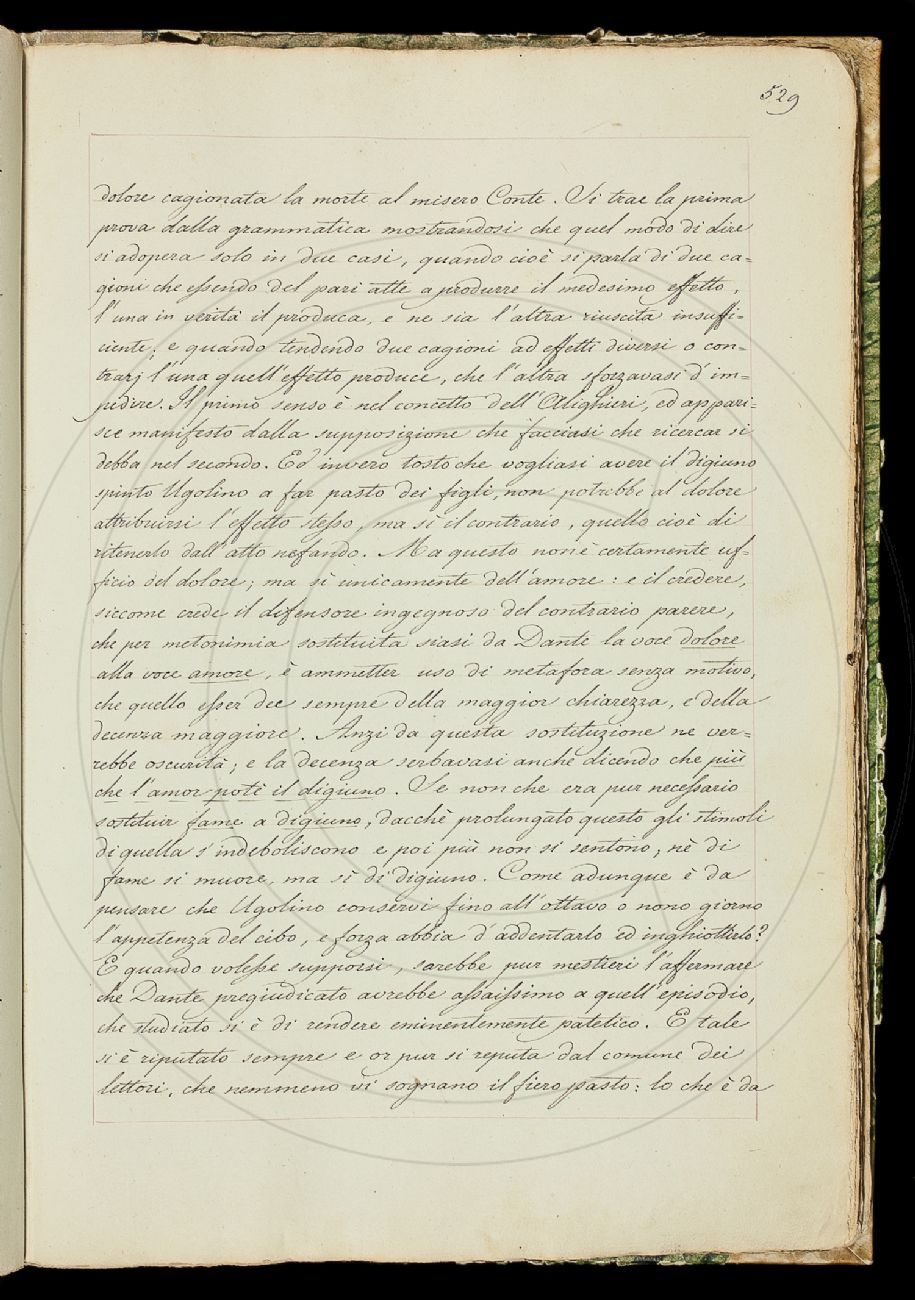 529
dolore cagionata la morte al misero Conte. Si trae la prima
prova dalla grammatica mostrandosi che quel modo di dire
si adopera solo in due casi, quando cioè si parla di due ca=
gioni che essendo del pari atte a produrre il medesimo effetto,
l'una in verità il produca, e ne sia l'altra riuscita insuffi=
ciente; e quando tendendo due cagioni ad effetti diversi o con=
trarj l'una quell'effetto produce, che l'altra sforzavasi d'im=
pedire. Il primo senso è nel concetto dell'Alighieri, ed appari=
sce manifesto dalla supposizione che facciasi che ricercar si
debba nel secondo. Ed invero tosto che vogliasi avere il digiuno
spinto Ugolino a far pasto dei figli, non potrebbe al dolore
attribuirsi l'effetto stesso, ma sì il contrario, quello cioè di
ritenerlo dall'atto nefando. Ma questo non è certamente uf=
ficio del dolore; ma sì unicamente dell'amore: e il credere,
siccome crede il difensore ingegnoso del contrario parere,
che per metonimia sostituita siasi da Dante la voce dolore
alla voce amore, è ammetter uso di metafora senza motivo,
che quello esser dee sempre della maggior chiarezza, e della
decenza maggiore. Anzi da questa sostituzione ne ver=
rebbe oscurità; e la decenza serbavasi anche dicendo che più
che l'amor potè il digiuno. Se non che era pur necessario
sostituir fame a digiuno, dacchè prolungato questo gli stimoli
di quella s'indeboliscono e poi più non si sentono; nè di
fame si muore, ma sì di digiuno. Come adunque è da
pensare che Ugolino conservi fino all'ottavo o nono giorno
l'appetenza del cibo, e forza abbia d'addentarlo ed inghiottirlo?
E quando volesse supporsi, sarebbe pur mestieri l'affermare
che Dante pregiudicato avrebbe assaissimo a quell'episodio,
che studiato si è di rendere eminentemente patetico. E tale
si è riputato sempre e or pur si reputa dal comune dei
lettori, che nemmeno vi sognano il fiero pasto: lo che è da